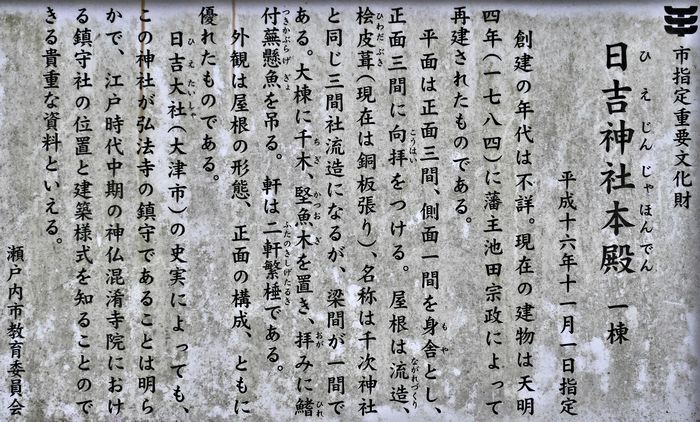 市指定重要文化財
日吉神社本殿 一棟
ひえじんじゃほんでん
平成十六年十一月一日指定
創建の年代は不詳。現在の建物は天明
四年(一七八四)に藩主池田宗政によって
再建されたものである。
平面は正面三間、側面一間を身舎とし、
もや
正面三間に向拝をつける。屋根は流造、
こうはい
ながれづくり
桧皮葺(現在は銅板張り)、名称は千次神社
ひわだぶき
と同じ三間社流造になるが、梁間が一間で
ある。大棟に千木、堅魚木を置き、拝みに鰭
ちぎ
かつおぎ
おが
ひれ
付蕪懸魚を吊る。軒は二軒繁棰である。
つきかぶらげぎょ
ふたのきしげたるき
外観は屋根の形態、正面の構成、ともに
優れたものである。
日吉大社(大津市)の史実によっても、
ひえたいしゃ
この神社が弘法寺の鎮守であることは明ら
かで、江戸時代中期の神仏混淆寺院におけ
る鎮守社の位置と建築様式を知ることので
きる貴重な資料といえる。
瀬戸内市教育委員会